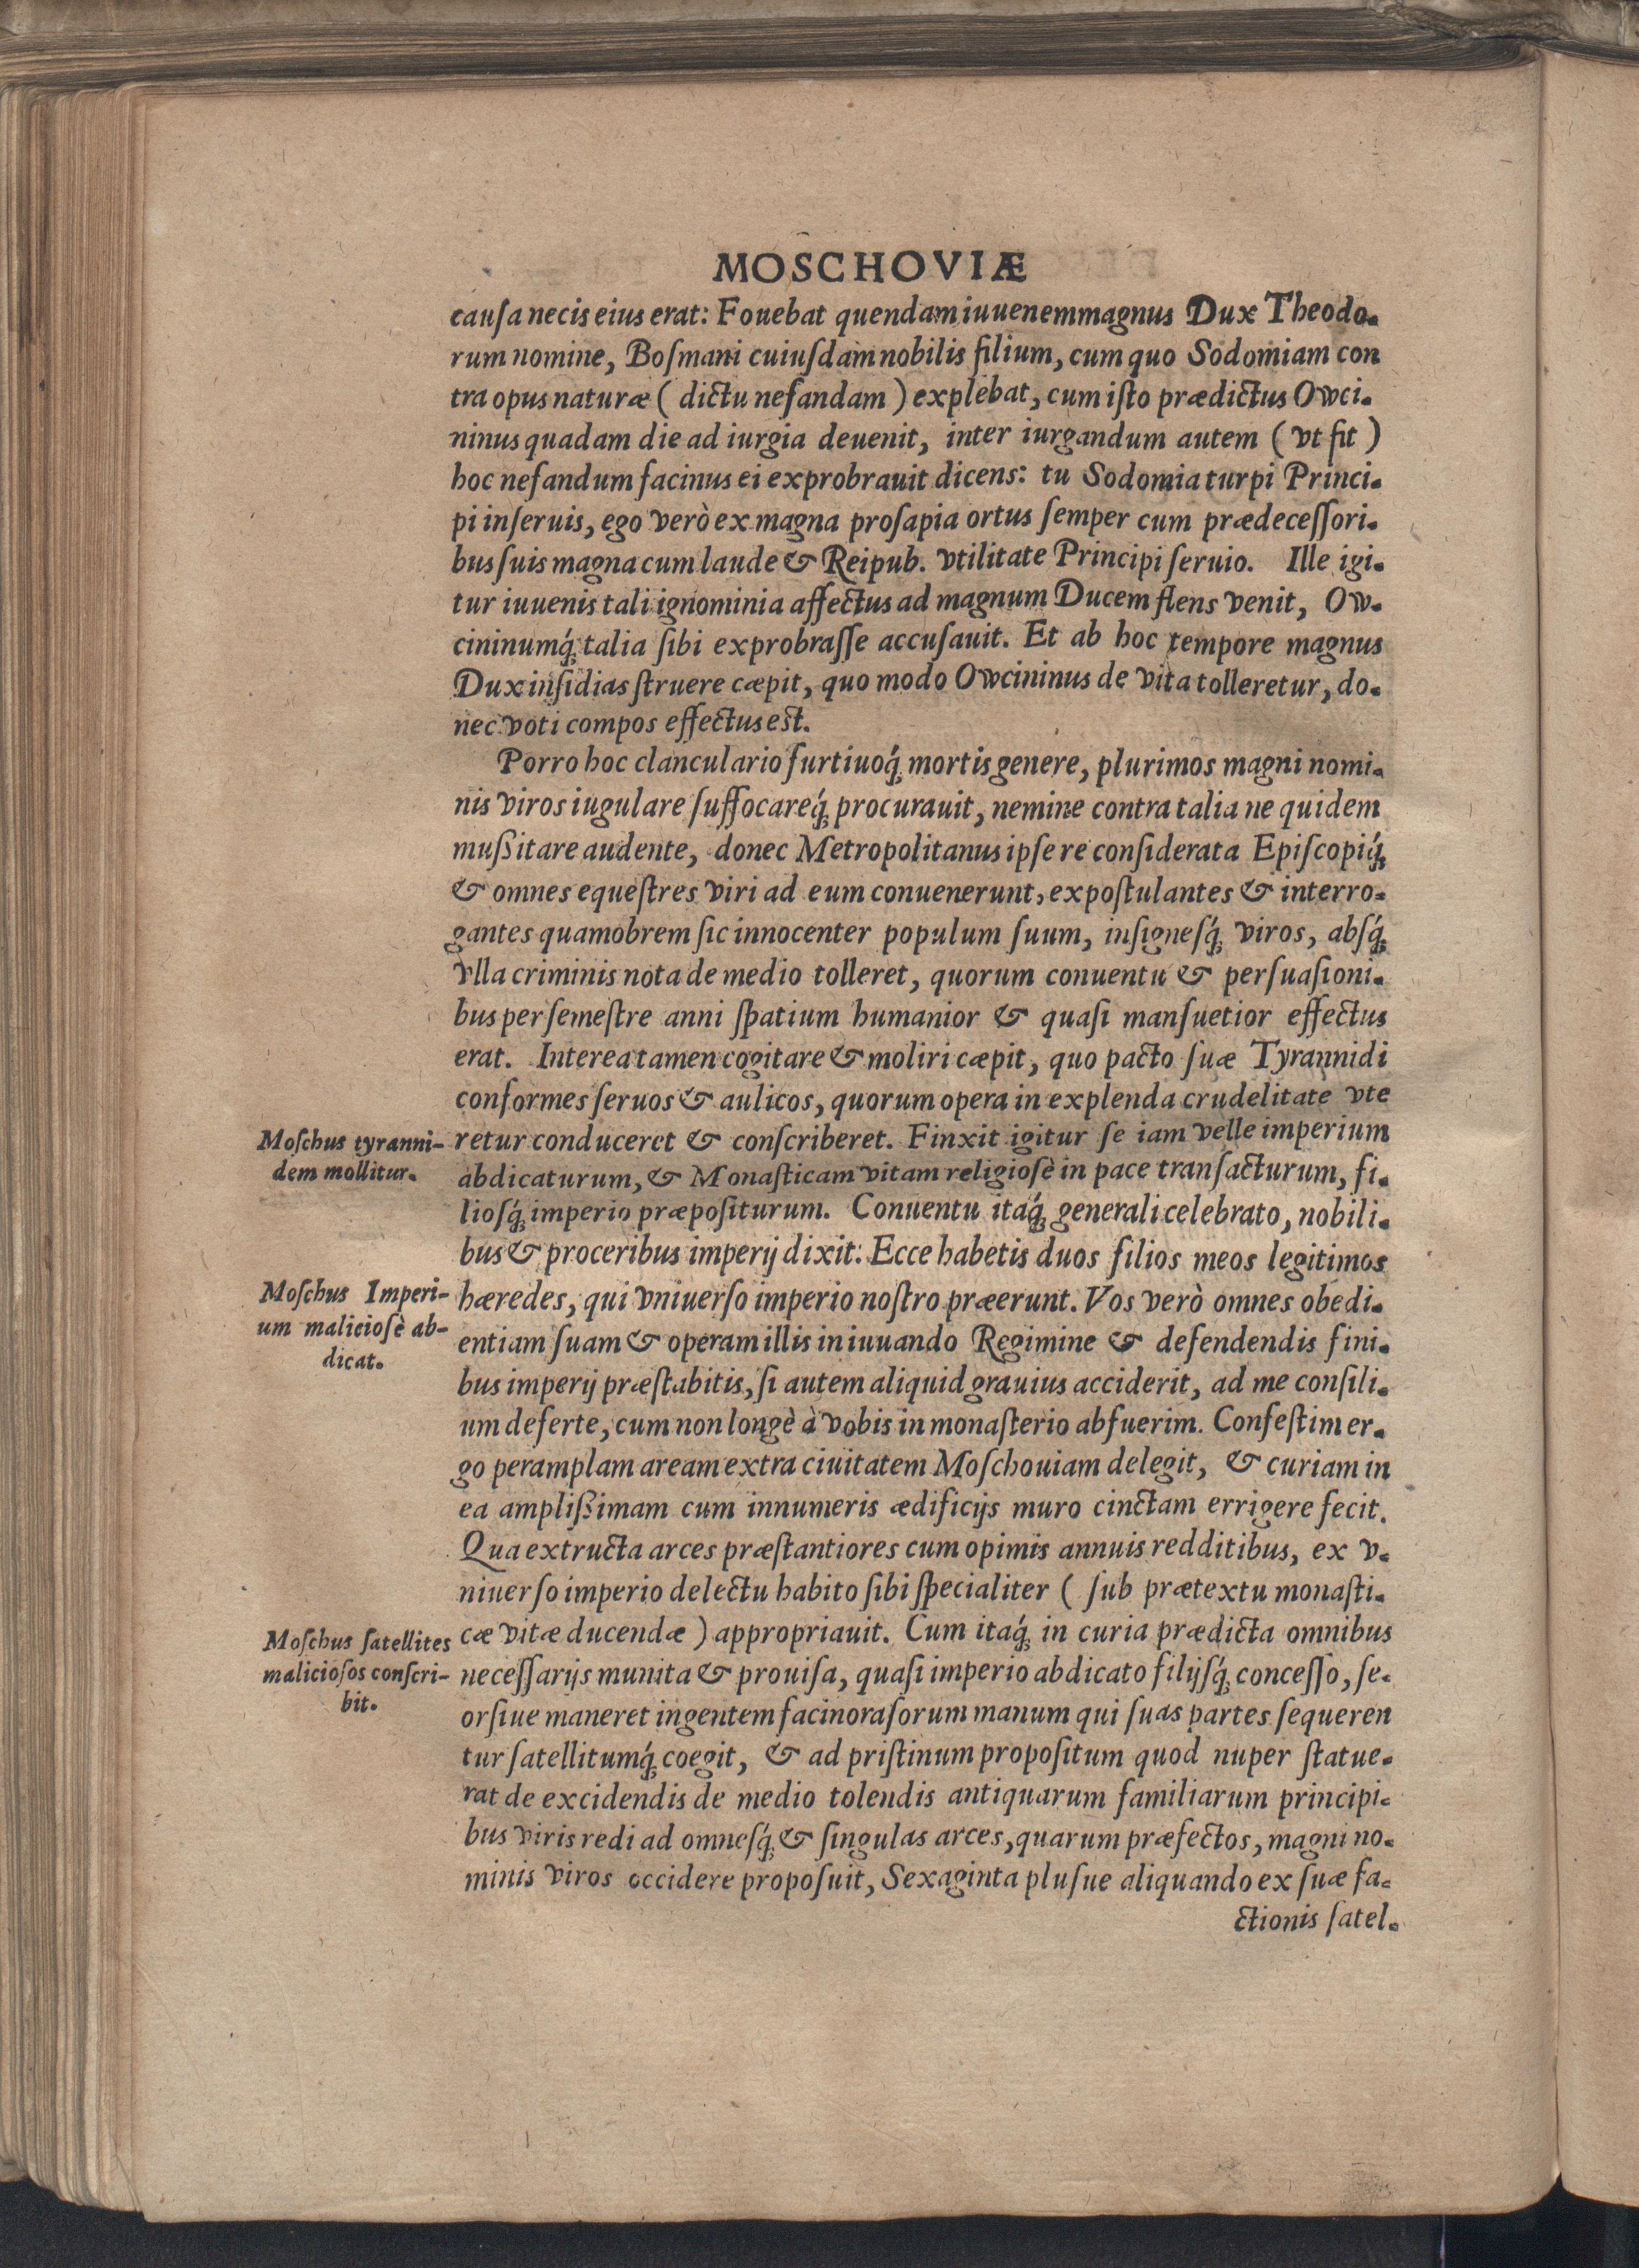 MOSCHOVIÆ
cauſa necis eius erat: Fouebat quendam iuuenem magnus Dux Theodo-
rum nomine, Boſmani cuiuſdam nobilis filium, cum quo Sodomiam con
tra opus naturæ ( dictu nefandam ) explebat, cum iſto prædictus Owci-
ninus quadam die ad iurgia deuenit, inter iurgandum autem ( vt fit )
hoc nefandum facinus ei exprobrauit dicens: tu Sodomia turpi Princi-
pi inſeruis, ego verò ex magna proſapia ortus ſemper cum prædeceſſori-
bus ſuis magna cum laude & Reipub. vtilitate Principi ſeruio. Ille igi-
tur iuuenis tali ignominia affectus ad magnum Ducem flens venit, Ow-
cininumq́; talia ſibi exprobraſſe accuſauit. Et ab hoc tempore magnus
Dux inſidias ſtruere cæpit, quo modo Owcininus de vita tolleretur, do-
nec voti compos effectus eſt.
Porro hoc clanculario furtiuoq́; mortis genere, plurimos magni nomi-
nis viros iugulare ſuffocareq́; procurauit, nemine contra talia ne quidem
mußitare audente, donec Metropolitanus ipſe re conſiderata Epiſcopiq́;
& omnes equeſtres viri ad eum conuenerunt, expoſtulantes & interro-
gantes quamobrem ſic innocenter populum ſuum, inſigneſq́; viros, abſq́;
vlla criminis nota de medio tolleret, quorum conuentu & perſuaſioni-
bus per ſemeſtre anni ſpatium humanior & quaſi manſuetior effectus
erat. Interea tamen cogitare & moliri cæpit, quo pacto ſuæ Tyrannidi
conformes ſeruos & aulicos, quorum opera in explenda crudelitate vte
Moſchus tyranni-
dem mollitur.
retur conduceret & conſcriberet. Finxit igitur ſe iam velle imperium
abdicaturum, & Monaſticam vitam religioſè in pace tranſacturum, fi-
lioſq́; imperio præpoſiturum. Conuentu itaq́; generali celebrato, nobili-
bus & proceribus imperij dixit: Ecce habetis duos filios meos legitimos
Moſchus Imperi-
um malicioſè ab-
dicat.
hæredes, qui vniuerſo imperio noſtro præerunt. Vos verò omnes obedi-
entiam ſuam & operam illis in iuuando Regimine & defendendis fini-
bus imperij præſtabitis, ſi autem aliquid grauius acciderit, ad me conſili-
um deferte, cum non longè à vobis in monaſterio abfuerim. Confeſtim er-
go peramplam aream extra ciuitatem Moſchouiam delegit, & curiam in
ea amplißimam cum innumeris ædificijs muro cinctam errigere fecit.
Qua extructa arces præſtantiores cum opimis annuis redditibus, ex v-
niuerſo imperio delectu habito ſibi ſpecialiter ( ſub prætextu monaſti-
Moſchus ſatellites
malicioſos conſcri-
bit.
cæ vitæ ducendæ ) appropriauit. Cum itaq́; in curia prædicta omnibus
neceſſarijs munita & prouiſa, quaſi imperio abdicato filijſq́; conceſſo, ſe-
orſiue maneret ingentem facinoraſorum manum qui ſuas partes ſequeren
tur ſatellitumq́; coegit, & ad priſtinum propoſitum quod nuper ſtatue-
rat de excidendis de medio tolendis antiquarum familiarum principi-
bus viris redi ad omneſq́; & ſingulas arces, quarum præfectos, magni no-
minis viros occidere propoſuit, Sexaginta pluſue aliquando ex ſuæ fa-
ctionis ſatel-